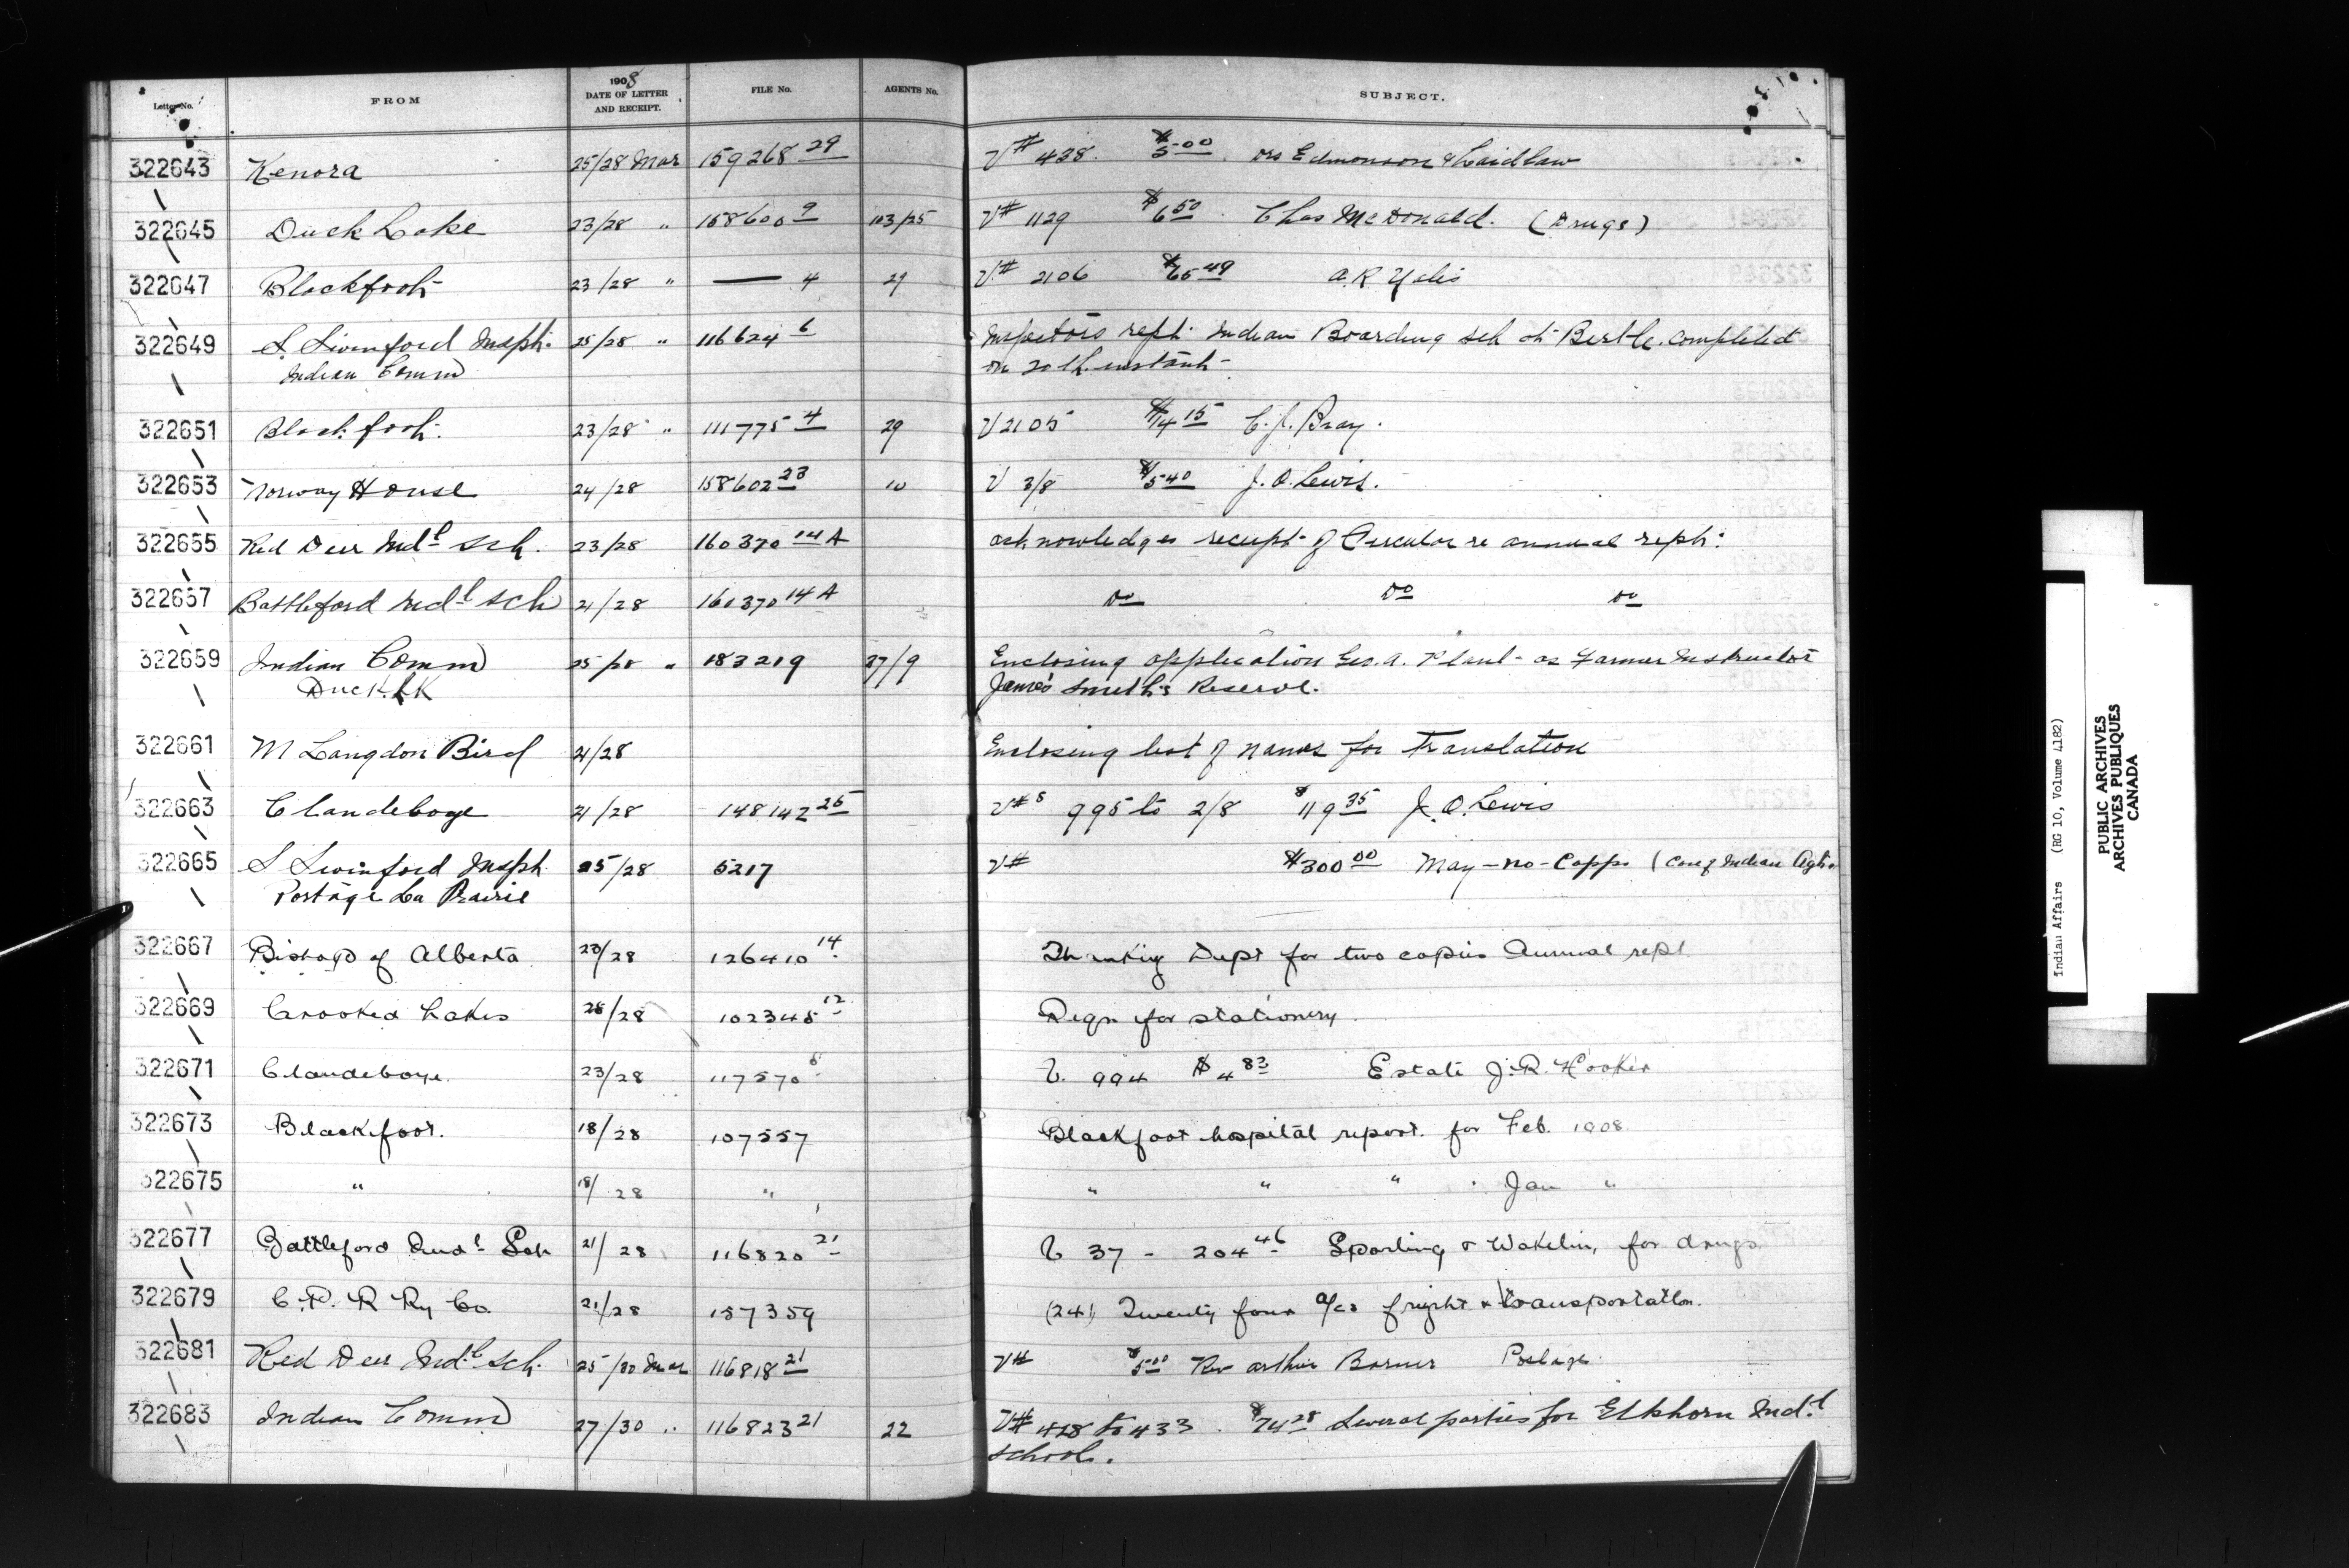 Letter No. FROM 1908 DATE OF LETTER AND RECEIPT. FILE No. AGENTS No. SUBJECT.
322643 Kenora 25/28 Mar 159268 29 V# 438. $5.00. Drs Edmonson & Laidlaw
322645 Duck Lake 23/28 " 158600 9 103/25 V# 1129 $6.50. Chas McDonald. (Drugs)
322647 Blackfoot 23/28 " — 4 29 V# 2106 $65.49 A.R.
322649 S. Swinford Inspt. 25/28 " 116624 6 Inspectors rept. Indian Boarding sch at Birtle. completed
Indian Comm on 20th instant
322651 Blackfoot. 23/28 " 111775 4 29 V 2105 $14.15 C.J. Bray.
322653 Norway House 24/28 158602 23 10 V 3/8 $5.40 J.O. Lewis.
322655 Red Deer Indl Sch. 23/28 160370 14A acknowledges receipt of Circular re annual rept.
322657 Battleford Indl sch 21/28 160370 14A Do Do Do
322659 Indian Comm 25/28 " 183219 27/9 Enclosing application Geo. A. as Farmer Instructor
Duck LK James Smith's Reserve.
322661 M Langdon Bird 21/28 Enclosing list of names for Translation
322663 Clandeboye 21/28 148142 25 V#s 995 to 2/8 $119.35 J.O. Lewis
322665 S Swinford Inspt 25/28 5217 V# $300.00 May-no-Capps (Indian
Portage La Prairie
322667 Bishop of Alberta 23/28 126410 14 Thanking Dept for two copies Annual rept
322669 Crooked Lakes 28/28 102345 12 Reqn for stationery.
322671 Clandeboye. 23/28 117570 8 V. 994 $4.83 Estate J.R. Hooker
322673 Blackfoot. 18/28 107557 Blackfoot hospital report. for Feb. 1908
322675 " 18/28 " " " " Jan "
322677 Battleford Indl Sch 21/28 116820 21 V 37 - 204.46 Sporling & Wakelin, for drugs
322679 C.P.R Ry Co. 21/28 157359 (24) Twenty four a/cs freight & transportation.
322681 Red Deer Indl. Sch. 25/30 Mar 116818 21 V# $5.00 Rev Arthur Barner Postage.
322683 Indian Comm 27/30 " 116823 21 22 V# 428 to 433. $74.28 Several parties for Elkhorn Indl
School.
Indian Affairs (RG 10, Volume 4182)
PUBLIC ARCHIVES
ARCHIVES PUBLIQUES
CANADA